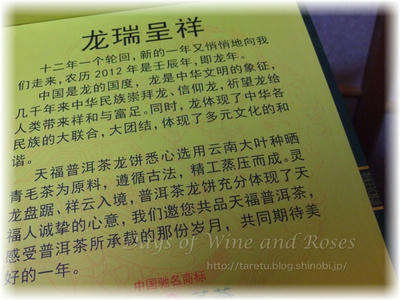 龙瑞呈祥
十二年一个轮回，新的一年又悄悄地向我
们走来，农历2012年是壬辰年，即龙年。
中国是龙的国度，龙是中华文明的象征，
几千年来中华民族崇拜龙、信仰龙，祈望龙给
人类带来祥和与富足。同时，龙体现了中华各
民族的大联合，大团结，体现了多元文化的和
谐。
天福普洱茶龙饼悉心选用云南大叶种晒
青毛茶为原料，遵循古法，精工蒸压而成。灵
龙盘踞，祥云入境，普洱茶龙饼充分体现了天
福人诚挚的心意，我们邀您共品天福普洱茶，
感受普洱茶所承载的那份岁月，共同期待美
好的一年。
Days of Wine and Roses
http://taretu.blog.shinobi.jp/
中国驰名商标